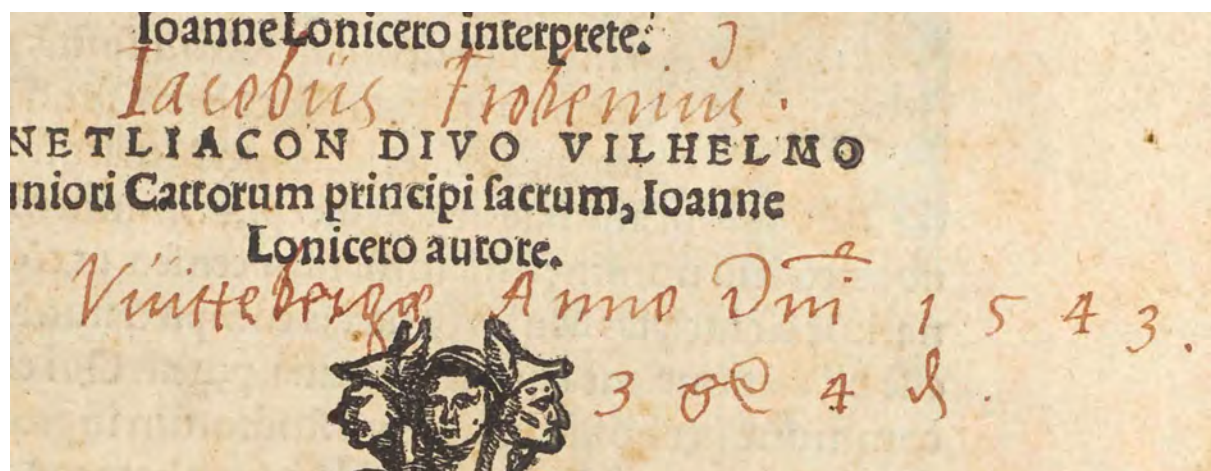 Ioanne Lonicero interprete.
Iacobus Frobenius.
NETLIACON DIVO VILHELMO
uniori Cattorum principi sacrum, Ioanne
Lonicero autore.
Vuittebergæ Anno Dni 1543.
3 4